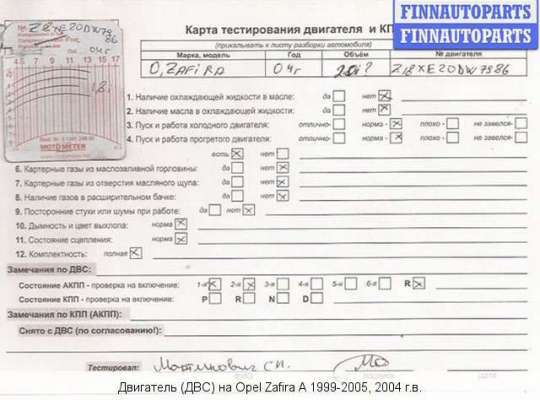 FINNAUTOPARTS
FINNAUTOPARTS
Карта тестирования двигателя и КП
(прикалывать к листу разборки автомобиля)
Марка, модель Год Объём № двигателя
O, ZAFiRA 04г Z18XE20DW7986
Z18XE20DW7986
04г
4 5 7 9 11 13 15 17
1.8
MOTOMETER
1. Наличие охлаждающей жидкости в масле: да нет
2. Наличие масла в охлаждающей жидкости: да нет
3. Пуск и работа холодного двигателя: отлично- норма- плохо- не завелся-
4. Пуск и работа прогретого двигателя: отлично- норма- плохо- не завелся-
есть нет
6. Картерные газы из маслозаливной горловины: да нет
7. Картерные газы из отверстия масляного щупа: да нет
8. Наличие газов в расширительном бачке: да нет
9. Посторонние стуки или шумы при работе: да нет
10. Дымность и цвет выхлопа: норма
11. Состояние сцепления: норма
12. Комплектность: полная
Замечания по ДВС:
Состояние АКПП - проверка на включение: 1-я 2-я 3-я 4-я 5-я 6-я R
Состояние КПП - проверка на включение: P R N D
Замечания по КПП (АКПП):
Снято с ДВС (по согласованию!):
Тестировал: Мартинович С.И.
Двигатель (ДВС) на Opel Zafira A 1999-2005, 2004 г.в.